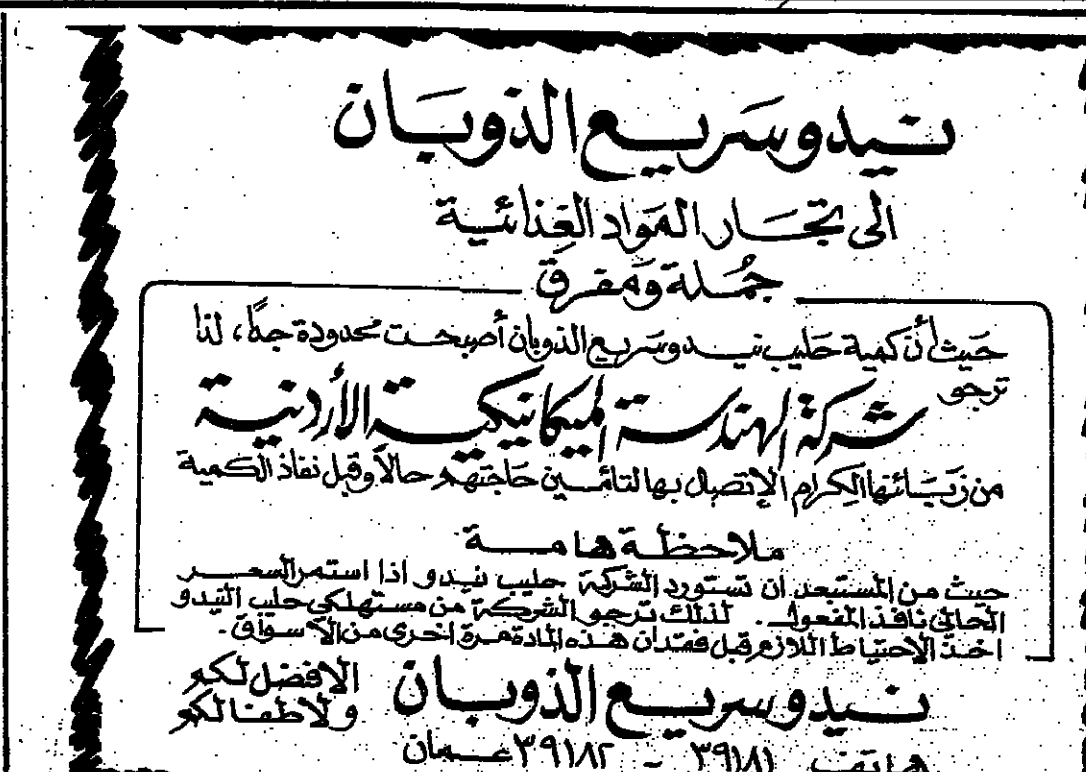 نيدو سريع الذوبان
الى تجار المواد الغذائية
جُملة ومفرق
حيث أن كمية حليب نيدو سريع الذوبان أصبحت محدودة جداً، لذا
ترجو
شركة الهندسة الميكانيكية الأردنية
من زبائنها الكرام الإتصال بها لتأمين حاجتهم حالاً وقبل نفاذ الكمية
ملاحظة هامة
حيث من المستبعد ان تستورد الشركة حليب نيدو اذا استمر السعر
الحالي نافذ المفعول. لذلك ترجو الشركة من مستهلكي حليب النيدو
اخذ الاحتياط اللازم قبل فقدان هذه المادة مرة اخرى من الاسواق.
نيدو سريع الذوبان
الافضل لكم
ولاطفالكم
هاتف ٣٩١٨١ - ٣٩١٨٢ عمان